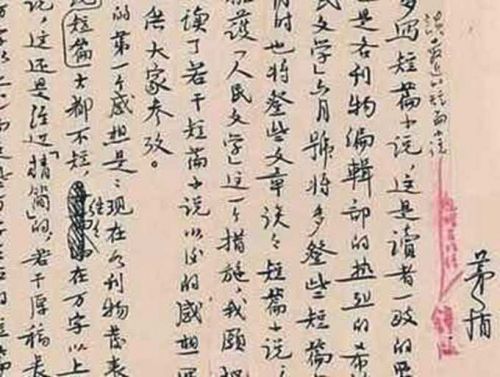 谈最近的短篇小说
茅盾
多写短篇小说,这是读者一致的
也是各刊物编辑部的热烈的希
民文学」六月號将多登些短篇
时也将登些文章谈谈短篇小说,
护「人民文学」这一个措施,我願把
读了若干短篇小说以后的感想写
供大家参考。
的第一个感想是:现在各刊物发表
短篇大都不短,往往在万字以上
说,这还是经过「精简」的,若干原稿长